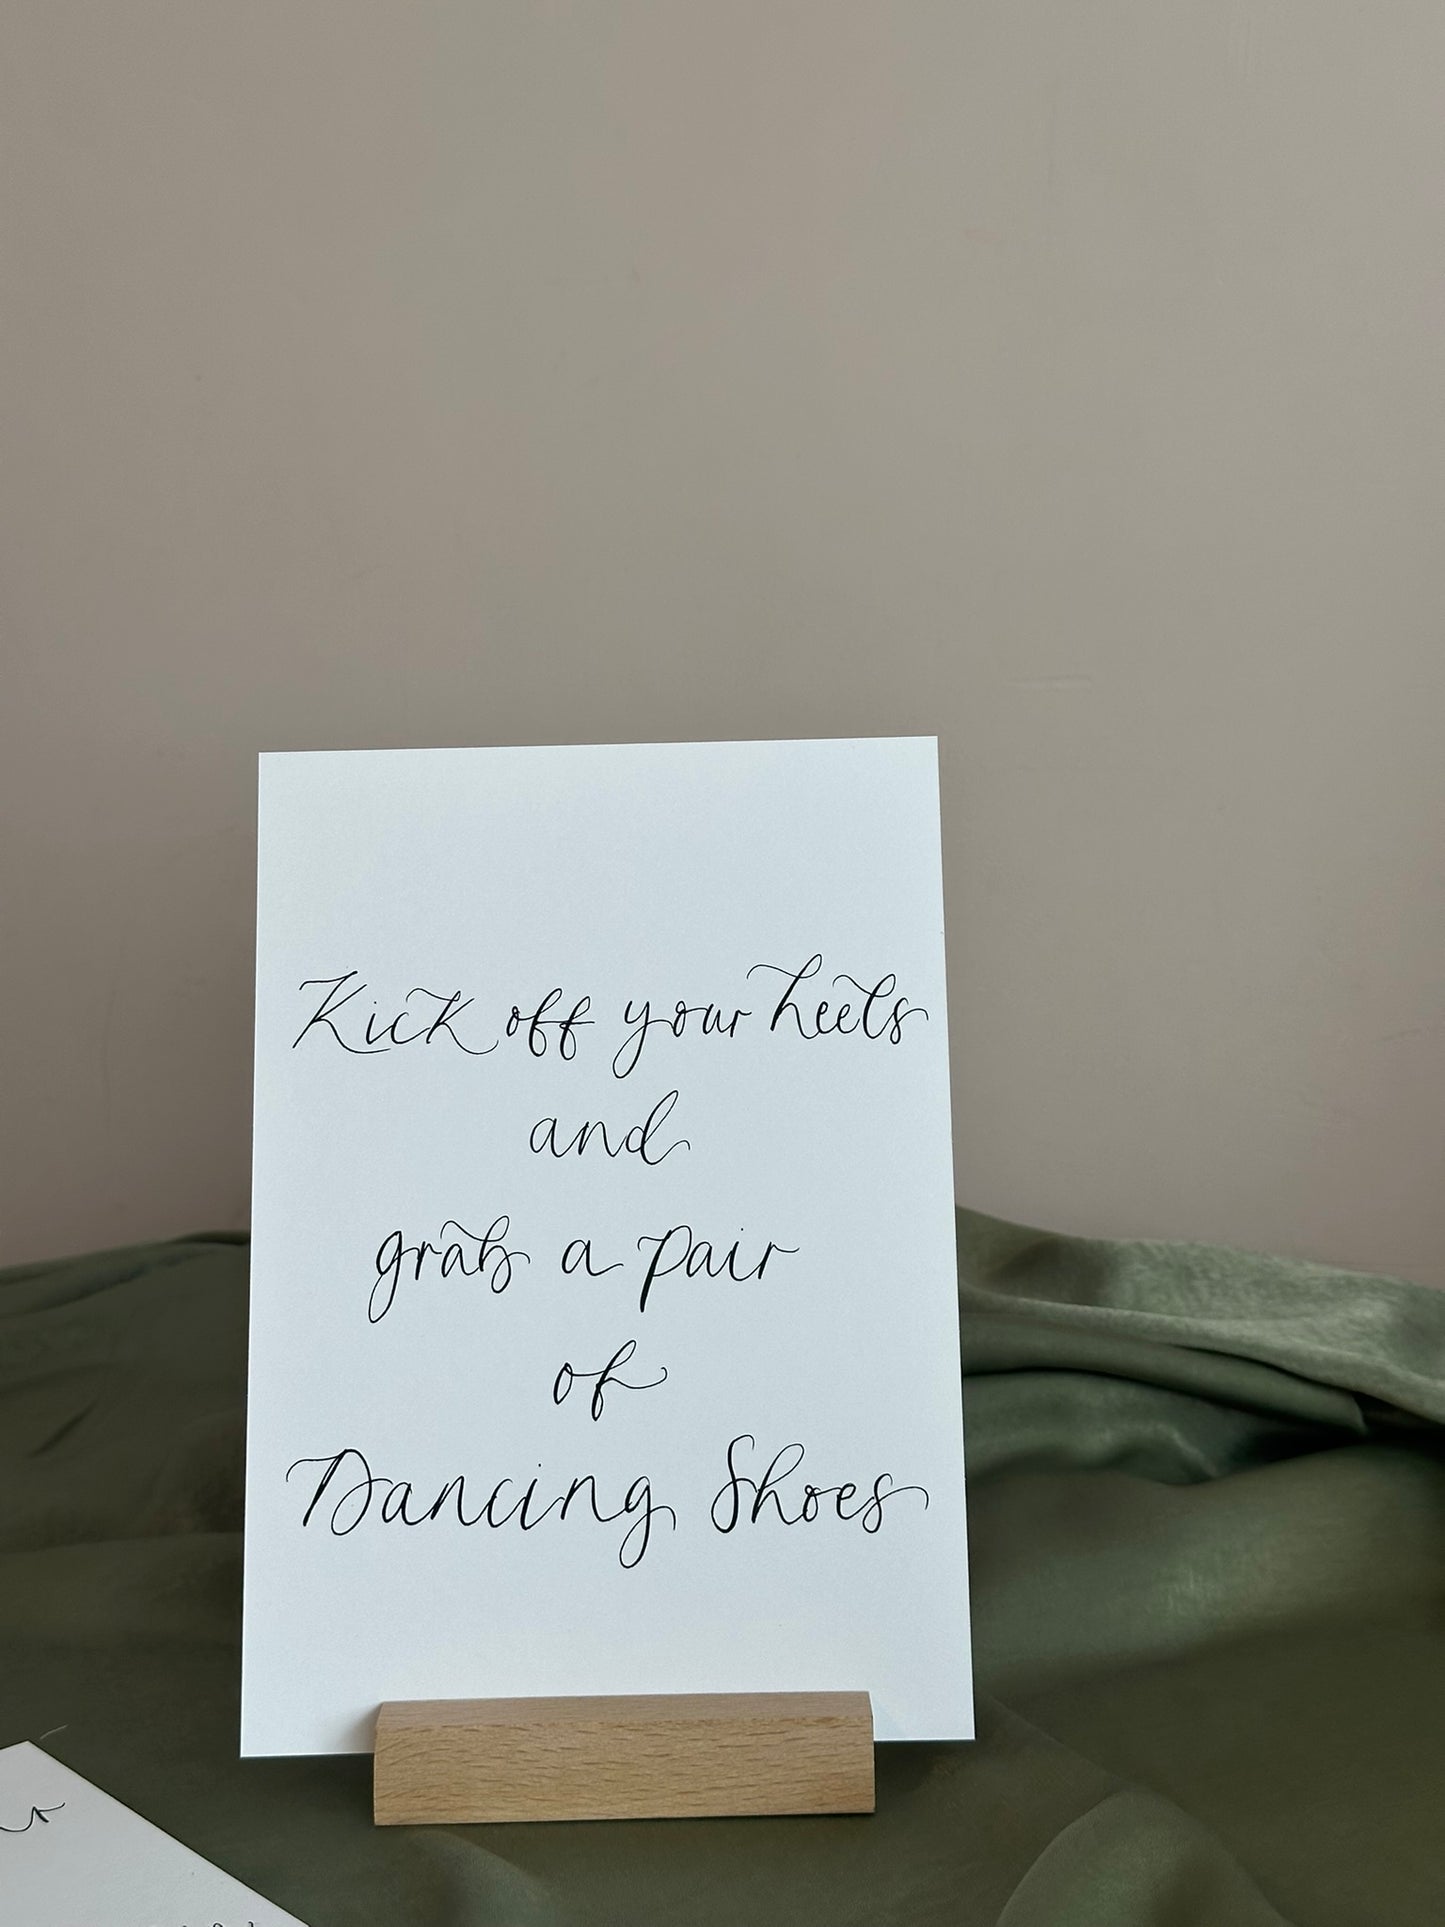 Kick off your heels
and
grab a pair
of
Dancing Shoes